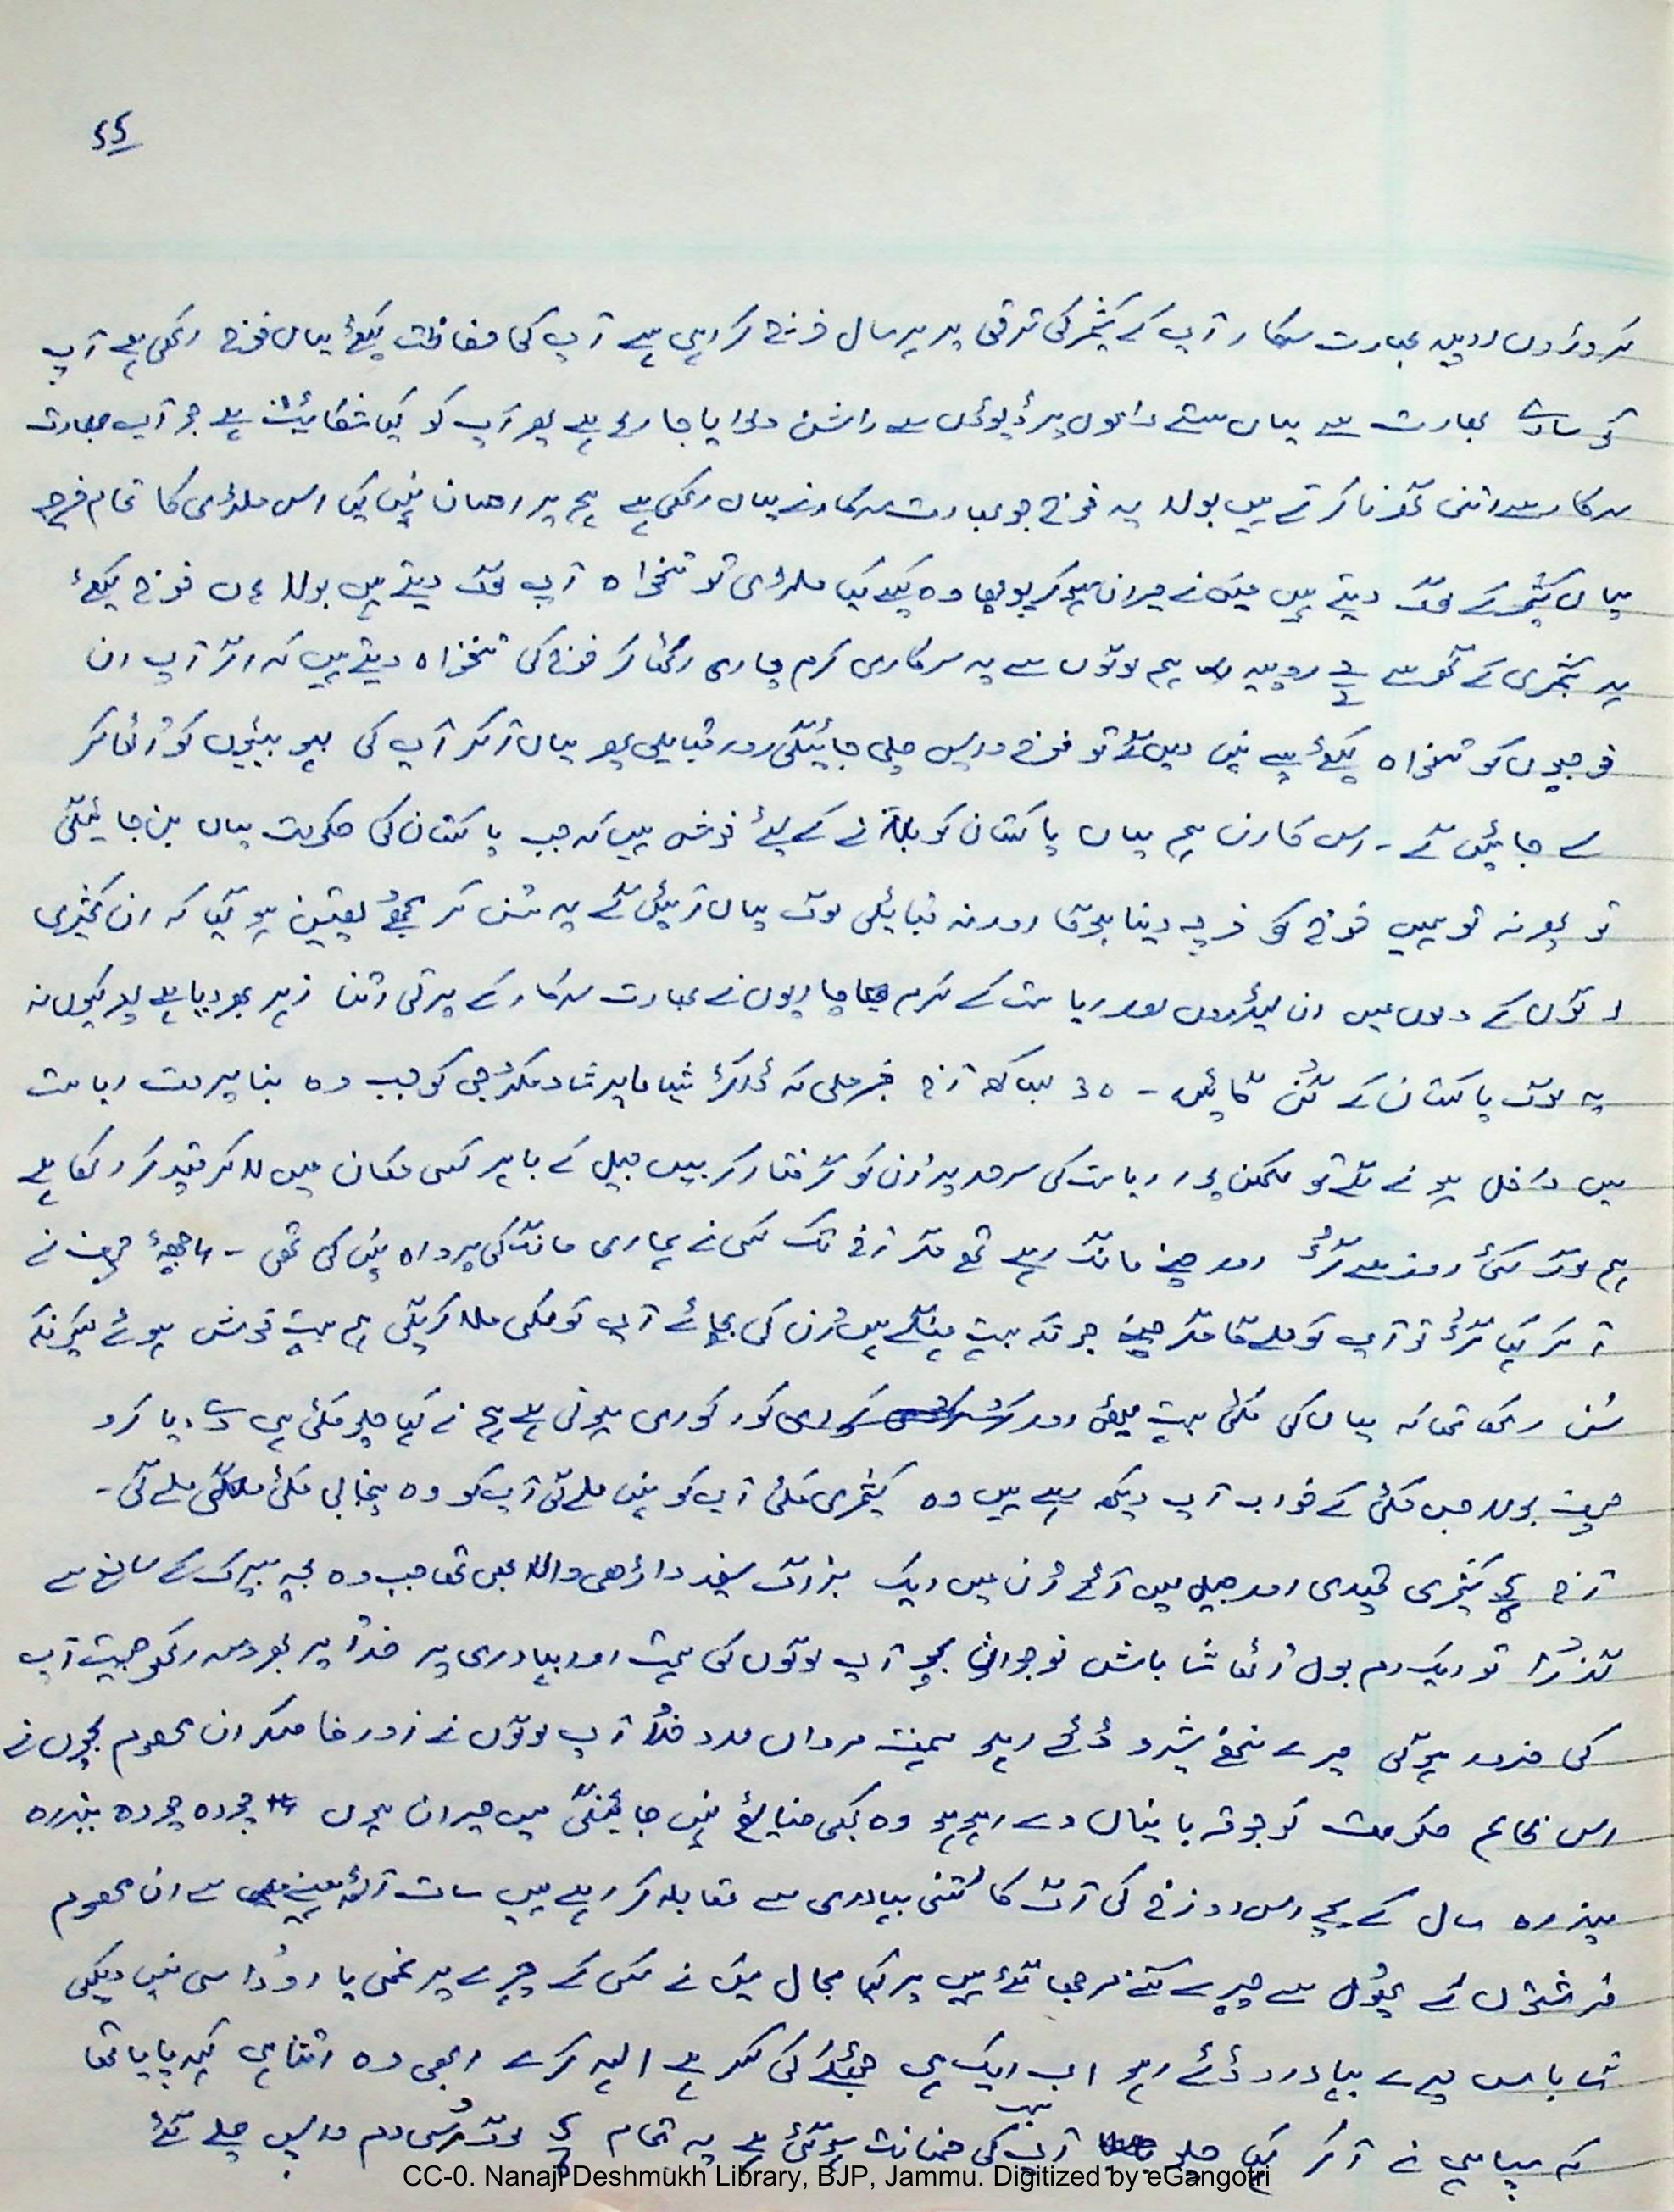 ۵۵
کروڑوں روپیہ بھارت سرکار آپ کے کشمیر کی ترقی پر ہر سال خرچ کر رہی ہے آپ کی حفاظت کیلئے یہاں فوج رکھی ہے آپ
کو سارے بھارت سے یہاں سستے داموں پر ڈپوؤں سے راشن دلوایا جا رہا ہے پھر آپ کو کیا شکائیت ہے جو آپ بھارت
سرکار سے اتنی گھرنا کرتے ہیں بولا یہ فوج جو بھارت سرکار نے یہاں رکھی ہے ہم پر احسان نہیں کیا اس ملٹری کا تمام خرچہ
یہاں کشمیر کے لوگ دیتے ہیں میں نے حیران ہو کر پوچھا وہ کیسے کیا ملٹری کو تنخواہ آپ لوگ دیتے ہیں بولا ہاں فوج کیلئے
ہر کشمیری کے گھر سے روپیہ ہم لوگوں سے یہ سرکاری کرم چاری اکٹھا کر فوج کی تنخواہ دیتے ہیں کہ اگر آپ ان
فوجیوں کو تنخواہ کیلئے پیسے نہیں دیں گے تو فوج واپس چلی جائیگی اور قبایلی پھر یہاں آ کر آپ کی بہو بیٹیوں کو اُٹھا کر
لے جائیں گے - اس کارن ہم یہاں پاکستان کو بلانے کے لیئے خوش ہیں کہ جب پاکستان کی حکومت یہاں بن جائیگی
تو پھر نہ تو ہمیں فوج کو خرچہ دینا ہوگا اور نہ قبائیلی لوگ یہاں آئیں گے یہ سُن کر مجھے یقین ہو گیا کہ ان کشمیری
لوگوں کے دلوں میں ان لیڈروں اور ریاست کے کرم چاریوں نے بھارت سرکار کے پرتی اتنا زہر بھر دیا ہے پھر کیوں نہ
یہ لوگ پاکستان کے گُن گائیں - ۳۰ بیساکھ آج خبر ملی کہ ڈاکٹر شیاما پرشاد مکرجی کو جب وہ بنا پرمٹ ریاست
میں داخل ہونے لگے تو لکھن پور ریاست کی سرحد پر اُن کو گرفتار کر یہیں جیل کے باہر کسی مکان میں لا کر قید کر رکھا ہے
ہم لوگ کئی روز سے گُڑ اور چنے مانگ رہے تھے مگر آج تک کسی نے ہماری مانگ کی پرواہ نہیں کی تھی - ۴ بجے چیف نے
آ کر کہا گُڑ تو آپ کو ملے گا مگر چنے جو کہ بہت مہنگے ہیں اُن کی بجائے آپ کو مکی ملا کریگی ہم بہت خوش ہوئے کیونکہ
سُن رکھا تھا کہ یہاں کی مکئی بہت میٹھی اور کور کوری ہوتی ہے ہم نے کہا چلو مکئی ہی دے دیا کرو
چیف بولا جس مکئی کے خواب آپ دیکھ رہے ہیں وہ کشمیری مکئی آپ کو نہیں ملے گی آپ کو وہ پنجابی مکئی ملے گی -
آج کچھ کشمیری قیدی اور جیل میں آئے اُن میں ایک بزرگ سفید داڑھی والا بھی تھا جب وہ بچہ بیرک کے سامنے سے
گذرا تو ایک دم بول اُٹھا شاباش نوجوانی بچو آپ لوگوں کی ہمت اور بہادری پر خدا پر بھروسہ رکھو جیت آپ
کی ضرور ہوگی میرے ننھے شیرو ڈٹے رہو ہمت مرداں مدد خدا آپ لوگوں نے زور خا صکر ان معصوم بچوں نے
اس ظالم حکومت کو جو قربانیاں دے رہے ہو وہ کبھی ضایع نہیں جائینگی میں حیران ہوں چودہ چودہ پندرہ
پندرہ سال کے بچے اس دوزخ کی آگ کا کتنی بہادری سے مقابلہ کر رہے ہیں سات آٹھ مہینے سے ان معصوم
فرشتوں کے پھول سے چہرے کتنے مرجھا گئے ہیں پر کیا مجال میں نے کسی کے چہرے پر غمی یا اُداسی نہیں دیکھی
شاباس میرے بہادرو ڈٹے رہو اب ایک ہی جھٹکے کی کسر ہے اللہ کرے ابھی وہ اتنا ہی کہہ پایا تھا
کہ سپاہی نے آ کر کہا چلو آپ کی ضمانت ہو گئی ہے یہ تمام لوگ اُسی دم واپس چلے گئے
CC-0. Nanaji Deshmukh Library, BJP, Jammu. Digitized by eGangotri